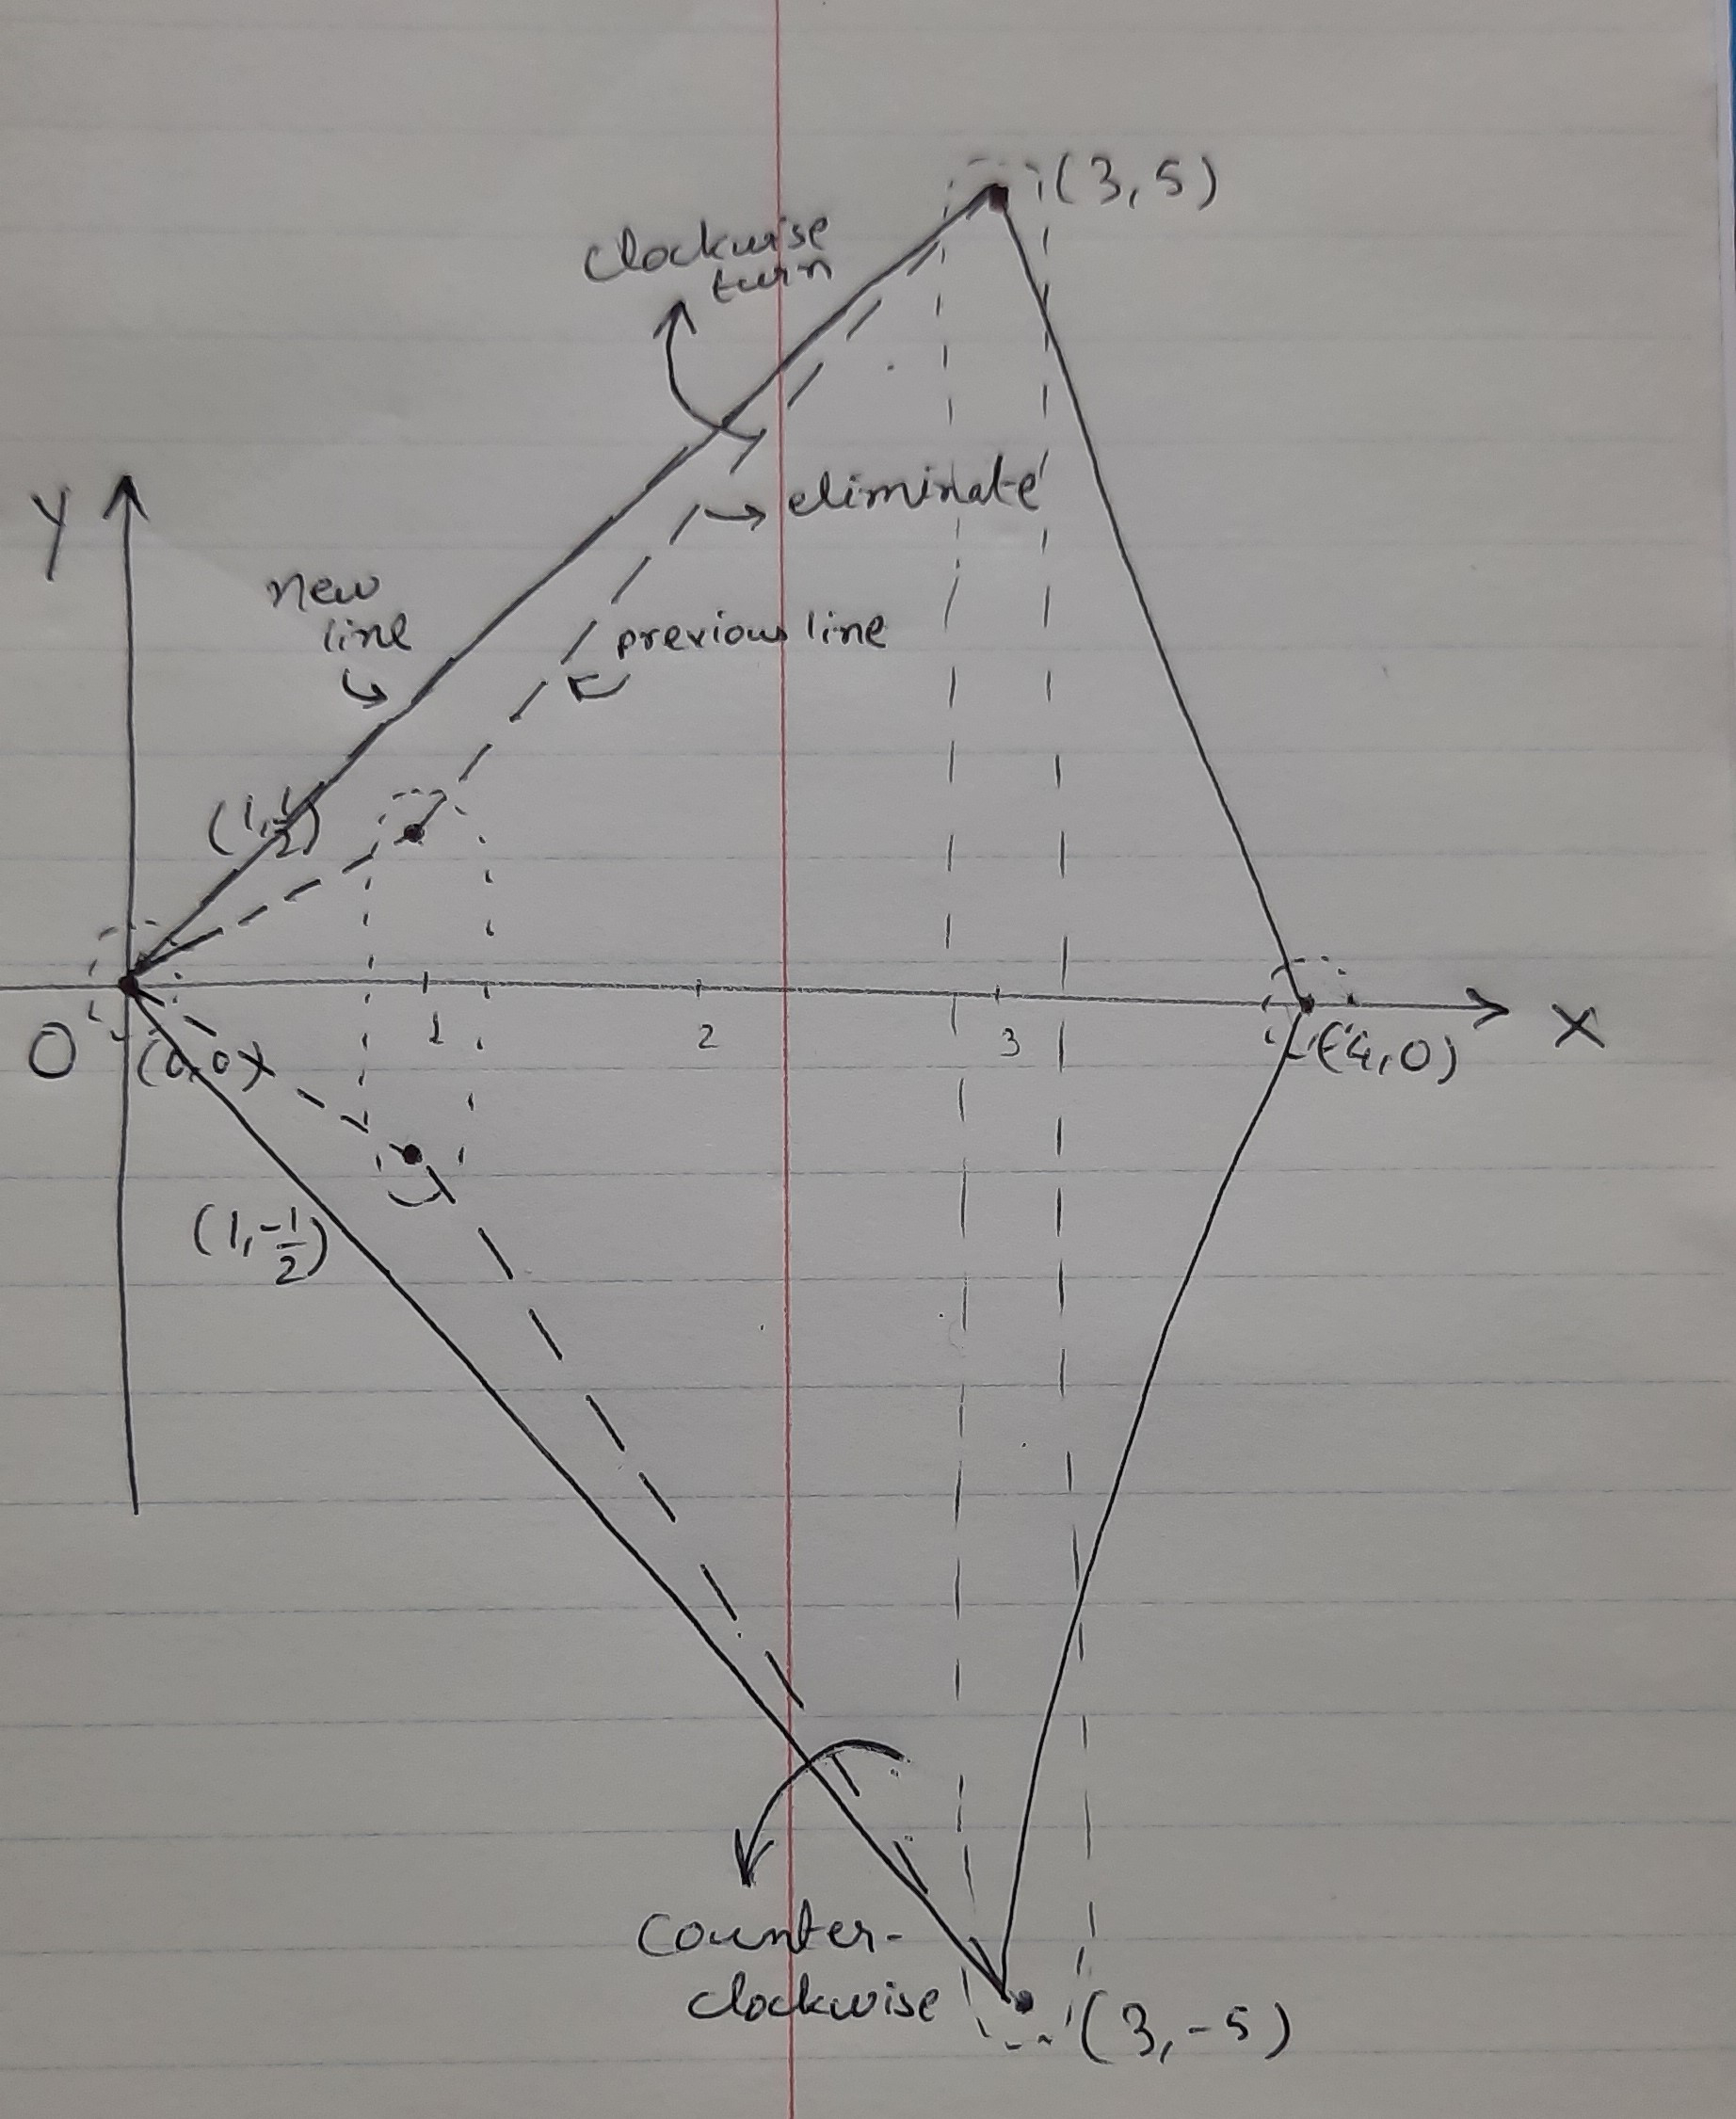 (3,5)
clockwise
turn
Y
eliminate
new
line
previous line
(1,1/2)
O
(0,0)
1
2
3
(4,0)
X
(1,-1/2)
counter-
clockwise
(3,-5)